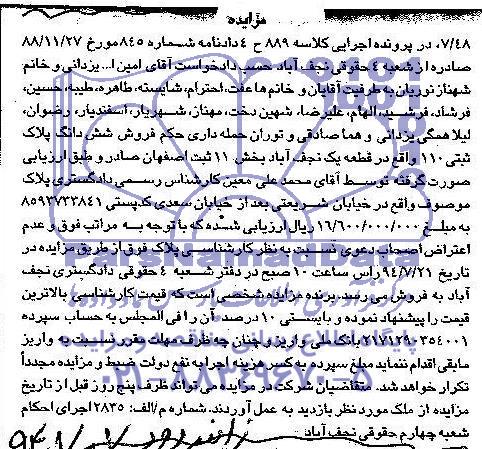 مزایده
۷/۴۸، در پرونده اجرایی کلاسه ۸۸۹ ح ۴ دادنامه شماره ۸۴۵ مورخ ۸۸/۱۱/۲۷
صادره از شعبه ۴ حقوقی نجف آباد حسب دادخواست آقای امین ا... یزدانی و خانم
شهناز نوریان به طرفیت آقایان و خانم ها عفت، احترام، شایسته، طاهره، طیبه، حسین،
فرشاد، فرشید، الهام، علیرضا، شهین دخت، مهناز، شهریار، اسفندیار، رضوان،
لیلا همگی یزدانی و هما صادقی و توران حمله داری حکم فروش شش دانگ پلاک
ثبتی ۱۱۰ واقع در قطعه یک نجف آباد بخش ۱۱ ثبت اصفهان صادر و طبق ارزیابی
صورت گرفته توسط آقای محمد علی معین کارشناس رسمی دادگستری پلاک
موصوف واقع در خیابان شریعتی بعد از خیابان سعدی کدپستی ۸۵۹۳۷۳۳۸۴۱
به مبلغ ۱۶/۶۰۰/۰۰۰/۰۰۰ ریال ارزیابی شده که با توجه به مراتب فوق و عدم
اعتراض اصحاب دعوی نسبت به نظر کارشناسی پلاک فوق از طریق مزایده در
تاریخ ۹۴/۷/۲۱ راس ساعت ۱۰ صبح در دفتر شعبه ۴ حقوقی دادگستری نجف
آباد به فروش می رسد. برنده مزایده شخصی است که قیمت کارشناسی بالاترین
قیمت را پیشنهاد نموده و بایستی ۱۰ درصد آن را فی المجلس به حساب سپرده
۲۱۷۱۲۹۰۳۵۴۰۰۱ بانک ملی واریز و چنان چه ظرف مهلت مقرر نسبت به واریز
مابقی اقدام ننماید مبلغ سپرده به کسر هزینه اجرا به نفع دولت ضبط و مزایده مجدداً
تکرار خواهد شد. متقاضیان شرکت در مزایده می تواند ظرف پنج روز قبل از تاریخ
مزایده از ملک مورد نظر بازدید به عمل آورند. شماره م/الف: ۲۸۳۵ اجرای احکام
شعبه چهارم حقوقی نجف آباد
ParsNamadData
پایگاه اطلاع رسانی مناقصه و مزایده
۰۲۱-۸۸۳۴۹۶۷۰-۵